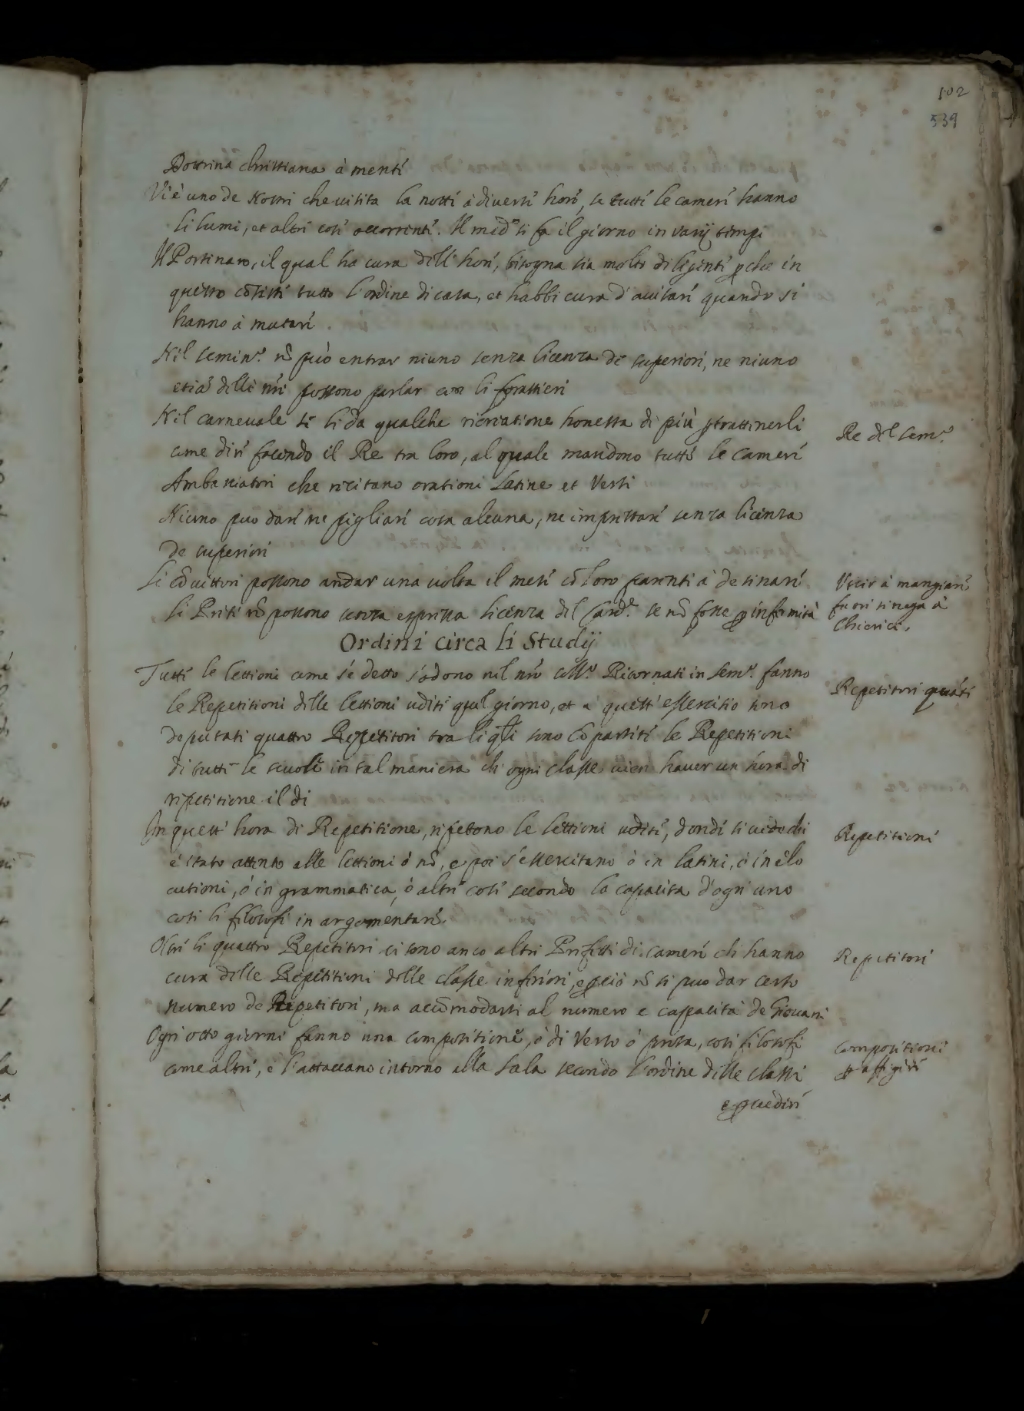 102
539
Dottrina christiana à menté
Vi è uno de Nostri che visita la notte à diverse hore, se tutte le camere hanno
li lumi, et altre cose occorrenti. Il med.º si fa il giorno in varij tempi
Il Portinaro, il qual ha cura delle hore, bisogna sia molto diligente ꝑche in
questo cõsiste tutto l'ordine di casa, et habbi cura d'avisare quando si
hanno à mutare.
Nel semin.º nõ può entrar niuno senza licenza de superiori, ne niuno
etiã delli nri possono parlar con li forastieri
Nel carnevale se li da qualche ricreatione honesta di più ꝑ trattenerli
come dire facendo il Re tra loro, al quale mandono tutte le camere
Ambasciatori che recitano orationi latine et Versi
Re del sem.º
Niuno puo dare ne pigliare cosa alcuna, ne imprestare senza licenza
de superiori
Li cõvittori possono andar una volta il mese cõ loro parenti à desinare
li Preti nõ possono senza espressa licenza del Card.le se nõ fosse ꝑ infermità
Uscir à mangiare
fuori si nega à
Chierici.
Ordini circa li Studij
Tutte le lettioni come s'è detto s'odono nel nrõ coll.º Ritornati in sem.º fanno
le Repetitioni delle lettioni udite quel giorno, et à quest'essercitio sono
deputati quattro Repetitori tra li qli sono cõpartite le Repetitioni
di tutte le scuole in tal maniera ch'ogni classe vien haver un hora di
repetitione il di
Repetitori quãti
In quest'hora di Repetitione, repetono le lettioni udite, donde si vede chi
è stato attento alle lettioni ò nõ, e poi s'essercitano ò in latini, ò in elo
cutione, ò in grammatica, ò altre cose secondo la capacità d'ogni uno
cosi li filosofi in argomentare.
Repetitioni
Oltre li quattro Repetitori ci sono anco altri Prefetti di camere ch'hanno
cura delle Repetitioni delle classe inferiori, e ꝑciò nõ si puo dar certo
numero de Repetitori, ma accõmodarsi al numero e capacità de Giovani
Repetitori
Ogni otto giorni fanno una compositione, ò di Verso ò prosa, cosi filosofi
come altri, e l'attaccano intorno alla sala secondo l'ordine delle classi
compositioni
et affigere
e ꝑ vedere